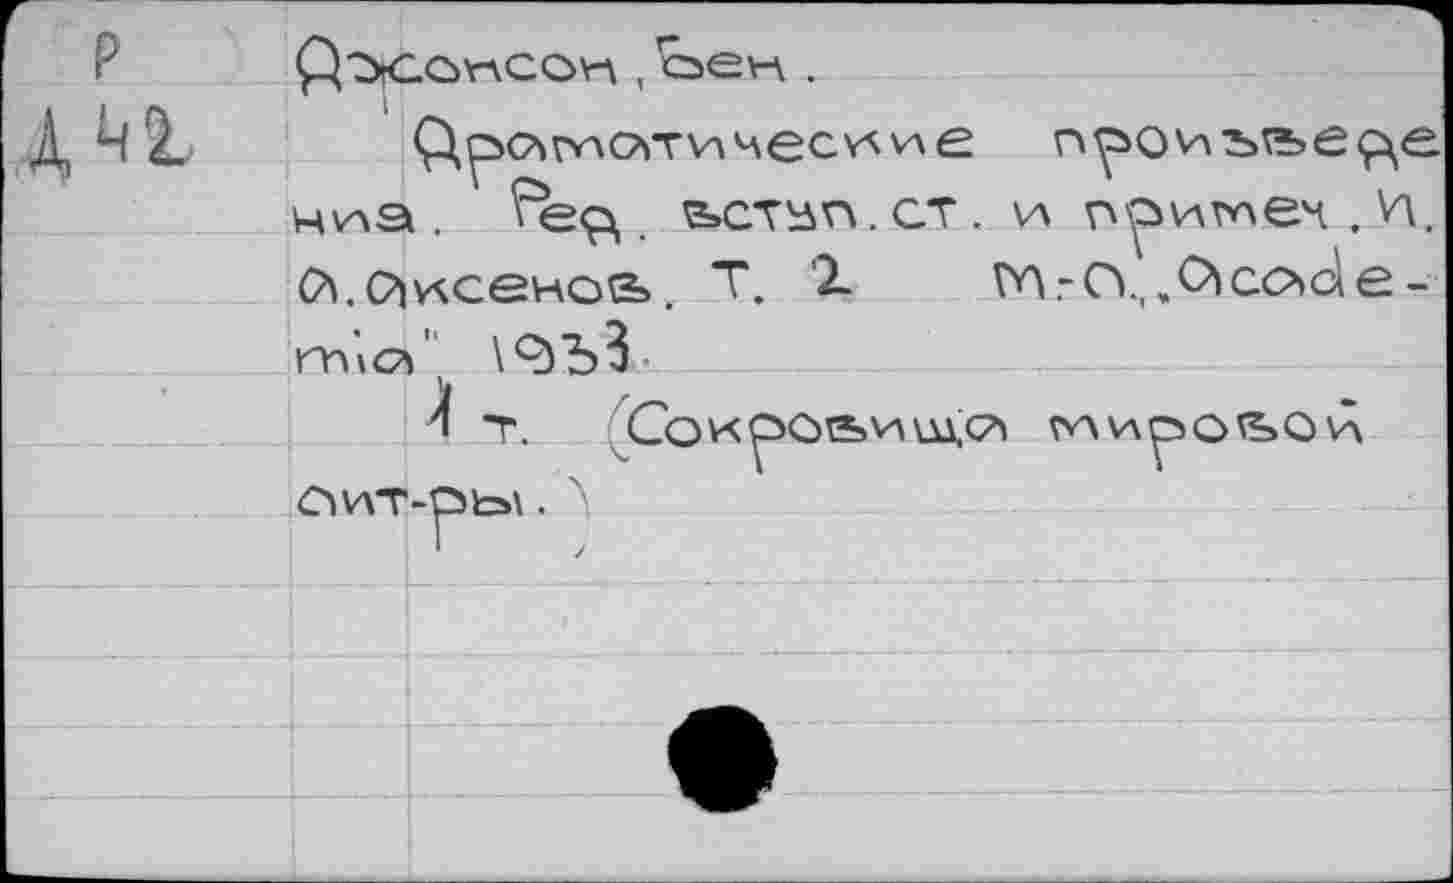 Р Джонсон, Бен.
Д42 Драматические произведе
ния. Ред. вступ. ст. и примеч. И.
А. Аксенов. Т. 2 М.-Л., „Academ-
mia" 1933.
1 т. (Сокровища мировой
лит-ры.)